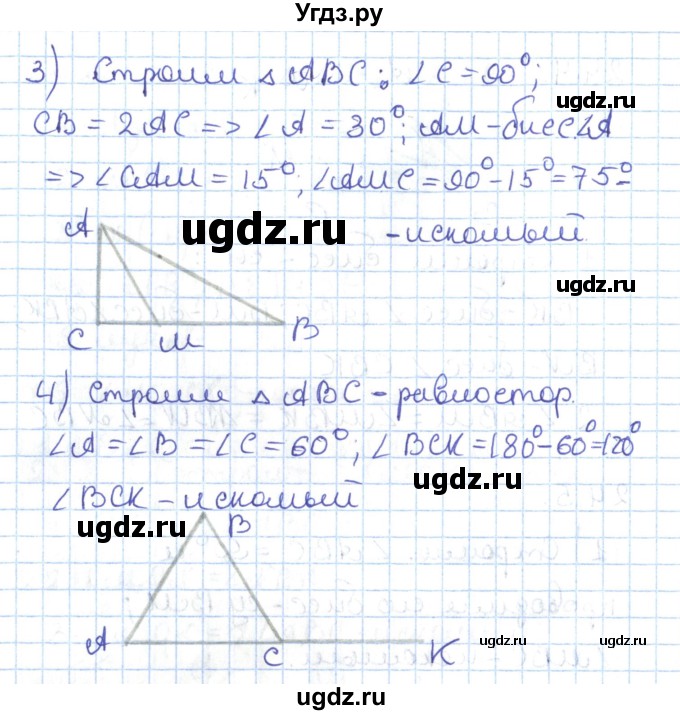 Угдз.ру
3) Строим △ ABC: ∠C = 90°;
ugdz.ru
CB = 2AC => ∠A = 30°; AM - бисс ∠A
=> ∠CAM = 15°, ∠AMC = 90° - 15° = 75° -
ugdz.ru
A
ugdz.ru
- искомый
C M B
4) Строим △ ABC - равностор.
∠A = ∠B = ∠C = 60°; ∠BCK = 180° - 60° = 120°
ugdz.ru
∠BCK - искомый
ugdz.ru
B
A C K
ugdz.ru
ugdz.ru
ugdz.ru